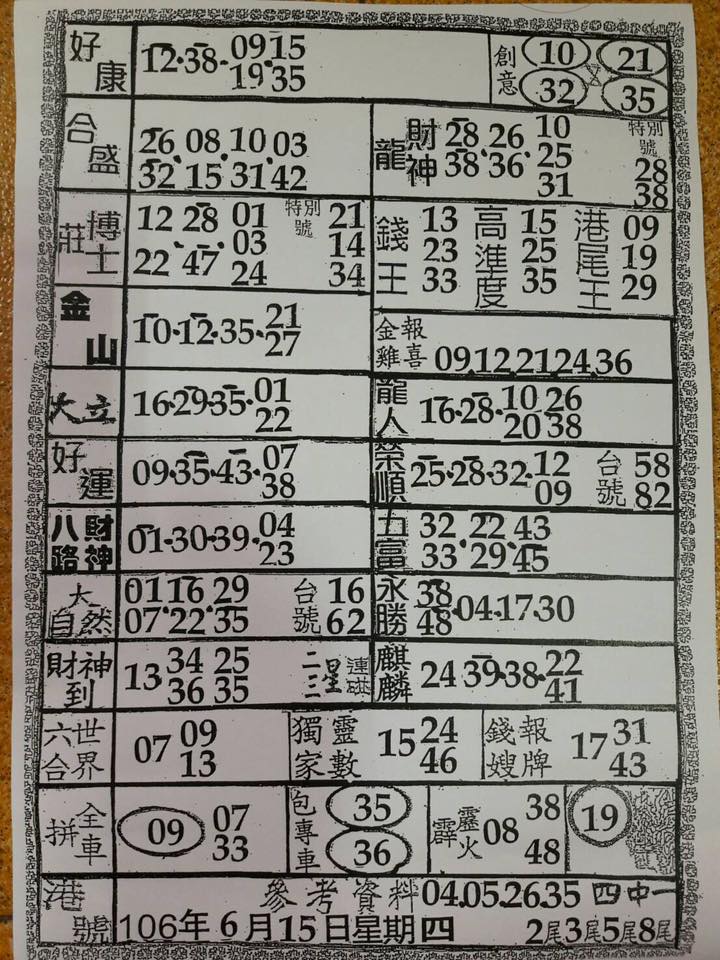 好康 12·38· 09·15
19·35
創意 10 21
32 35
合盛 26 08 10 03
32 15 31 42
龍 財神 28 26 10
38 36 25
31
特別號 28
38
博士莊 12 28 01
22 47 03
24
特別號 21
14
34
錢王 13
23
33
高準度 15
25
35
港尾王 09
19
29
金山 10·12·35· 21
27
金雞報喜 09.12.21.24.36
大立 16·29·35· 01
22
龍人 16·28· 10 26
20 38
好運 09·35·43· 07
38
榮順 25·28·32· 12
09
台號 58
82
八路財神 01·30·39· 04
23
五富 32 22 43
33 29 45
大自然 01 16 29
07 22 35
台號 16
62
永勝 38
48 ·04·17·30
財神到 13 34 25
36 35
二三星 連碰
麒麟 24·39·38· 22
41
六合世界 07 09
13
獨家靈數 15 24
46
錢嫂報牌 17 31
43
全車拼 09 07
33
包專車 35
36
霹靂火 08 38
48
19
港號 參考資料 04.05.26.35 四中一
106年6月15日星期四 2尾3尾5尾8尾